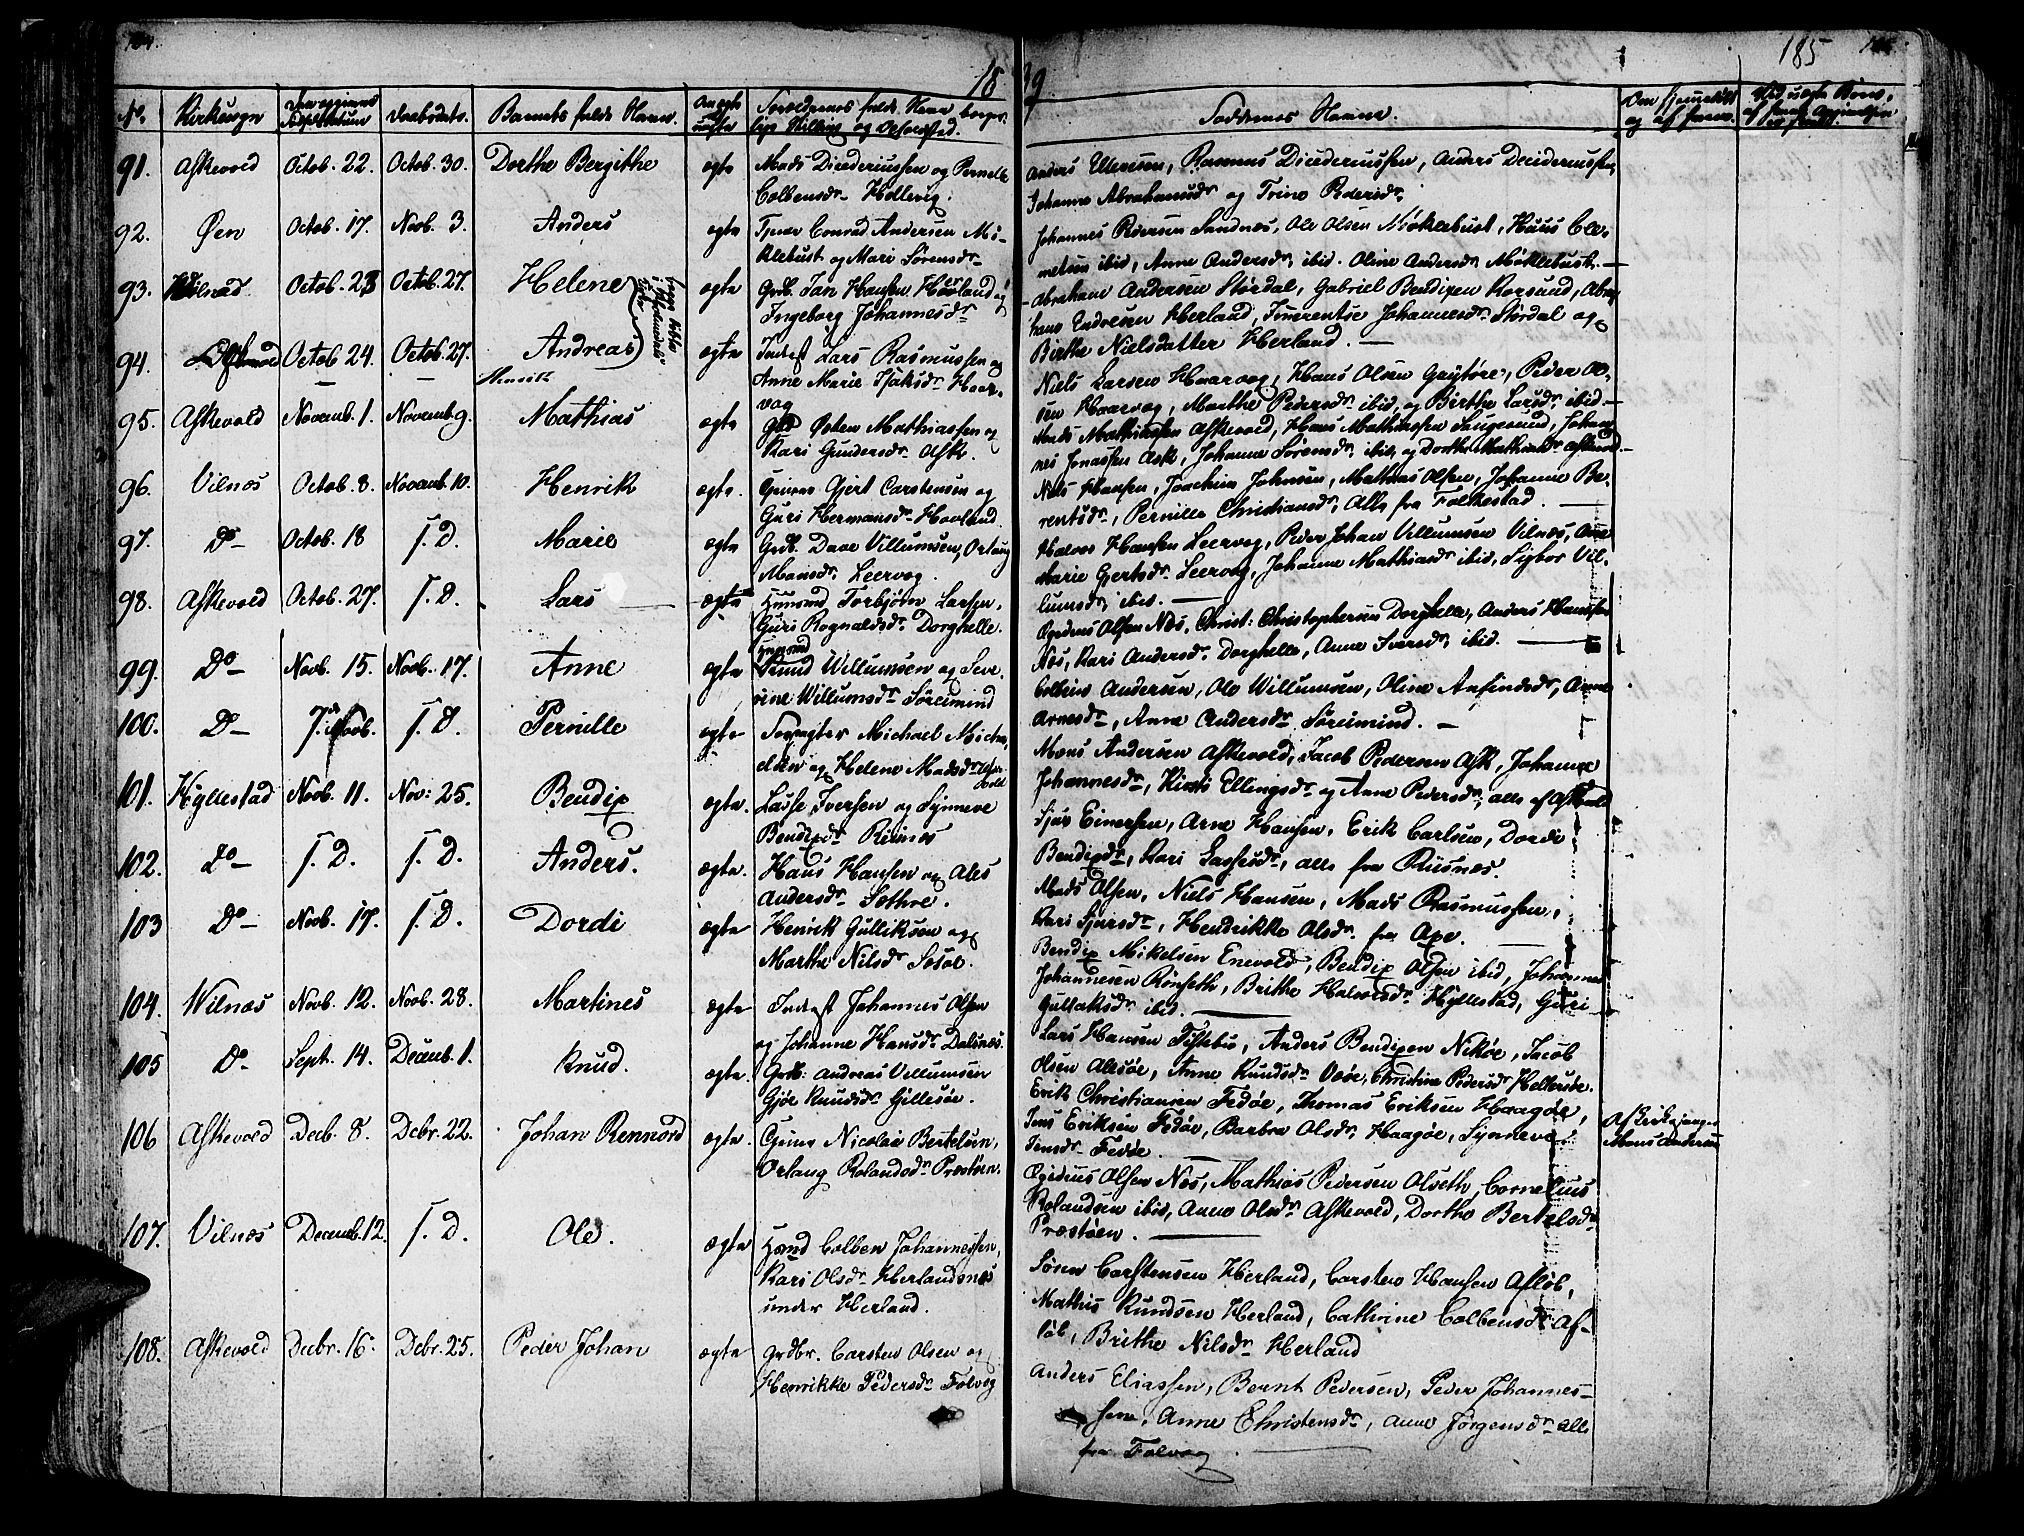 184.
18
39
185
No. Kirkesogn Daabsdato. Barnets fulde Navn. Forældrenes fulde Navn
Faddernes Navne.
91. Askevold Octob. 22. Octob. 30. Dorthe Bergithe ægte Mads Dideriussen og Pernelle
Colbensdr Hellevig.
Rasmus Dideriussen, Anders Dideriussen,
Johanne Abrahamsdr og Trine Pedersdr
92. Øen Octob. 17. Novb. 3. Anders ægte Conrad Andersen My-
klebust og Mari Sørensdr
Johannes Pedersen Sandnes, Ole Olsen Møklebust, Hans Cle-
metsen ibid, Anne Andersdr ibid. Oline Andersdr Møklebust.
93. Vilnæs Octob. 23 Octob. 27. Helene ægte Grdb. Jan Hansen Hovland og
Ingeborg Johannesdr
Abraham Andersen Størdal, Gabriel Bendixen Korssund, Abra-
ham Endresen Herland, Johannesdr Størdal og
Birthe Nielsdatter Herland.
94. Octob 24. Octob. 27. Andreas Henrik ægte Inderst Lars Rasmussen og
Anne Marie Isaksdr Haar-
vog
Niels Larsen Haarvog, Hans Olsen Peder Ol-
sen Haarvog, Marthe Pedersdr ibid, og Birthe Larsdr ibid.
95. Askevold Novemb. 1. Novemb. 9. Mathias ægte Østen Mathiassen og
Kari Gundersdr Ask.
Mads Mathiassen Askevold, Hans Mathiassen Johan-
nes Jonassen Ask, Johanne Sørensdr ibid, og Dorthe Askevold.
96. Vilnæs Octob. 8. Novemb. 10. Henrik ægte. Gjert Carstensen og
Guri Hermansdr Hovland.
Niels Hansen, Joachim Johnsen, Mathias Olsen, Johanne Be-
rentsdr, Pernille Christiansdr, Alle fra Folkestad.
97. Do Octob. 18 s. D. Marie ægte Grdb. Dave Villumsen, Orlaug
Monsdr Leervog.
Halvor Hansen Leervog, Peder Johan Villumsen Vilnæs, Ane
Marie Gjertsdr Leervog, Johanne Mathiasdr ibid, Sigbor Vil-
lumsdr ibid.
98. Askevold Octob. 27. s. D. Lars ægte Huusmd Torbjørn Larsen,
Guri Rognaldsdr Dorghelle.
Egedius Olsen Næs, Christ: Christophersen Dorghelle, Anders Hansen
Næs, Kari Andersdr Dorghelle, Anne Iversdr ibid.
99. Do Novb. 15. Novb. 17. Anne ægte Willumsen og Seve-
rine Willumsdr Søreimind
Colbens Andersen, Ole Willumsen, Oline Anfindsdr, Anne
Arnesdr, Anne Andersdr Søreimind.
100. Do 7. Novb. s. D. Pernille ægte Michael Micha-
elsen og Helene Madsdr
Mons Andersen Askevold, Jacob Pedersen Ask, Johanne
Johannesdr, Kirsti Ellingsdr og Anne Pedersdr, alle af Askevold
101. Hyllestad Novb. 11. Nov: 25. Bendix ægte. Lasse Iversen og Synneve
Bendixdr Risnes
Sjur Einersen, Arne Hansen, Erik Carlsen, Dordi
Bendixdr, Kari Lassesdr, alle fra Riisnæs.
102. Do s. D. s. D. Anders. ægte. Hans Hansen og Ales
Andersdr Sæthre.
Mads Olsen, Niels Hansen, Mads Rasmussen,
Kari Sjursdr, Hendrikke Olsdr fra Axe.
103 Do Novb. 17. s. D. Dordi ægte Henrik Gulliksen og
Marthe Nilsdr Sosol.
Bendix Mikelsen Enevold, Bendix Olsen ibid, Johannes
Johannesen Rønseth, Brithe Halvorsdr Hyllestad, Guri
Gullaksdr ibid.
104. Wilnæs Novb. 12. Novb. 28. Martines ægte Inderst Johannes Olsen
og Johanne Hansdr Dalsnæs.
Lars Hansen Fistebu, Anders Bendixen Nikøe, Jacob
Olsen Alesøe, Anne Knudsdr Christine Pedersdr Hellersøe.
105 Do Sept. 14. Decemb. 1. Knud. ægte. Grdb: Andreas Villumsen
Gjøe Knudsdr Gillesøe.
Erik Christiansen Fedøe, Thomas Eriksen Haagøe,
Jens Eriksen Fedøe, Barbra Olsdr Haagøe, Synneva
Jensdr Fedøe.
106 Askevold Decb. 8. Decbr. 22. Johan Rennord ægte. Nicolai Bertelsen,
Orlaug Rolandsdr Præstøen.
Egedius Olsen Næs, Mathias Pedersen Olseth, Cornelius
Rolandsen ibid, Anne Olsdr Askevold, Dorthe Bertelsdr
Præstøen.
Af Kirkesanger
Mons Andersen
107. Vilnæs Decemb. 12. s. D. Ole. ægte Hsmd Colben Johannessen,
Kari Olsdr Herlandsnæs
under Herland.
Søren Carstensen Herland, Carsten Hansen Afløb,
Mathis Knudsen Herland, Cathrine Colbensdr Af-
løb, Brithe Nilsdr Herland
108. Askevold Decbr. 16. Decbr. 25. Peder Johan ægte Grdbr. Carsten Olsen og
Henrikke Pedersdr Folvog
Anders Eliassen, Bernt Pedersen, Peder Johannes-
sen, Anne Christensdr, Anne Jørgensdr alle
fra Folvog.